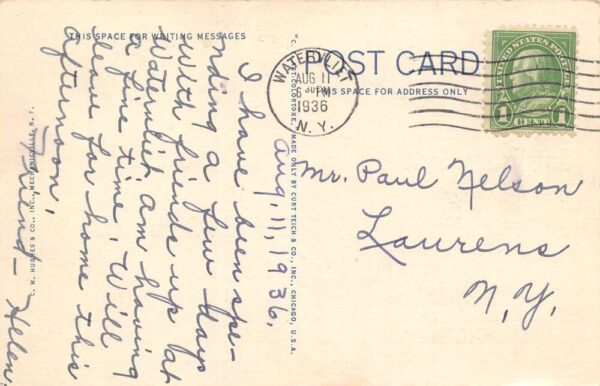 THIS SPACE FOR WRITING MESSAGES
POST CARD
THIS SPACE FOR ADDRESS ONLY
WATERVLIET
AUG 11
6 PM
1936
N. Y.
UNITED STATES POSTAGE
1 CENT 1
Aug. 11, 1936.
I have been spe-
nding a few days
with friends up at
Watervliet am having
a fine time. Will
leave for home this
afternoon.
Friend - Helen
Mr. Paul Nelson
Laurens
N.Y.
"C. T. COLORTONE" MADE ONLY BY CURT TEICH & CO., INC., CHICAGO, U.S.A.
C. W. HUGHES & CO., INC., MECHANICVILLE, N. Y.